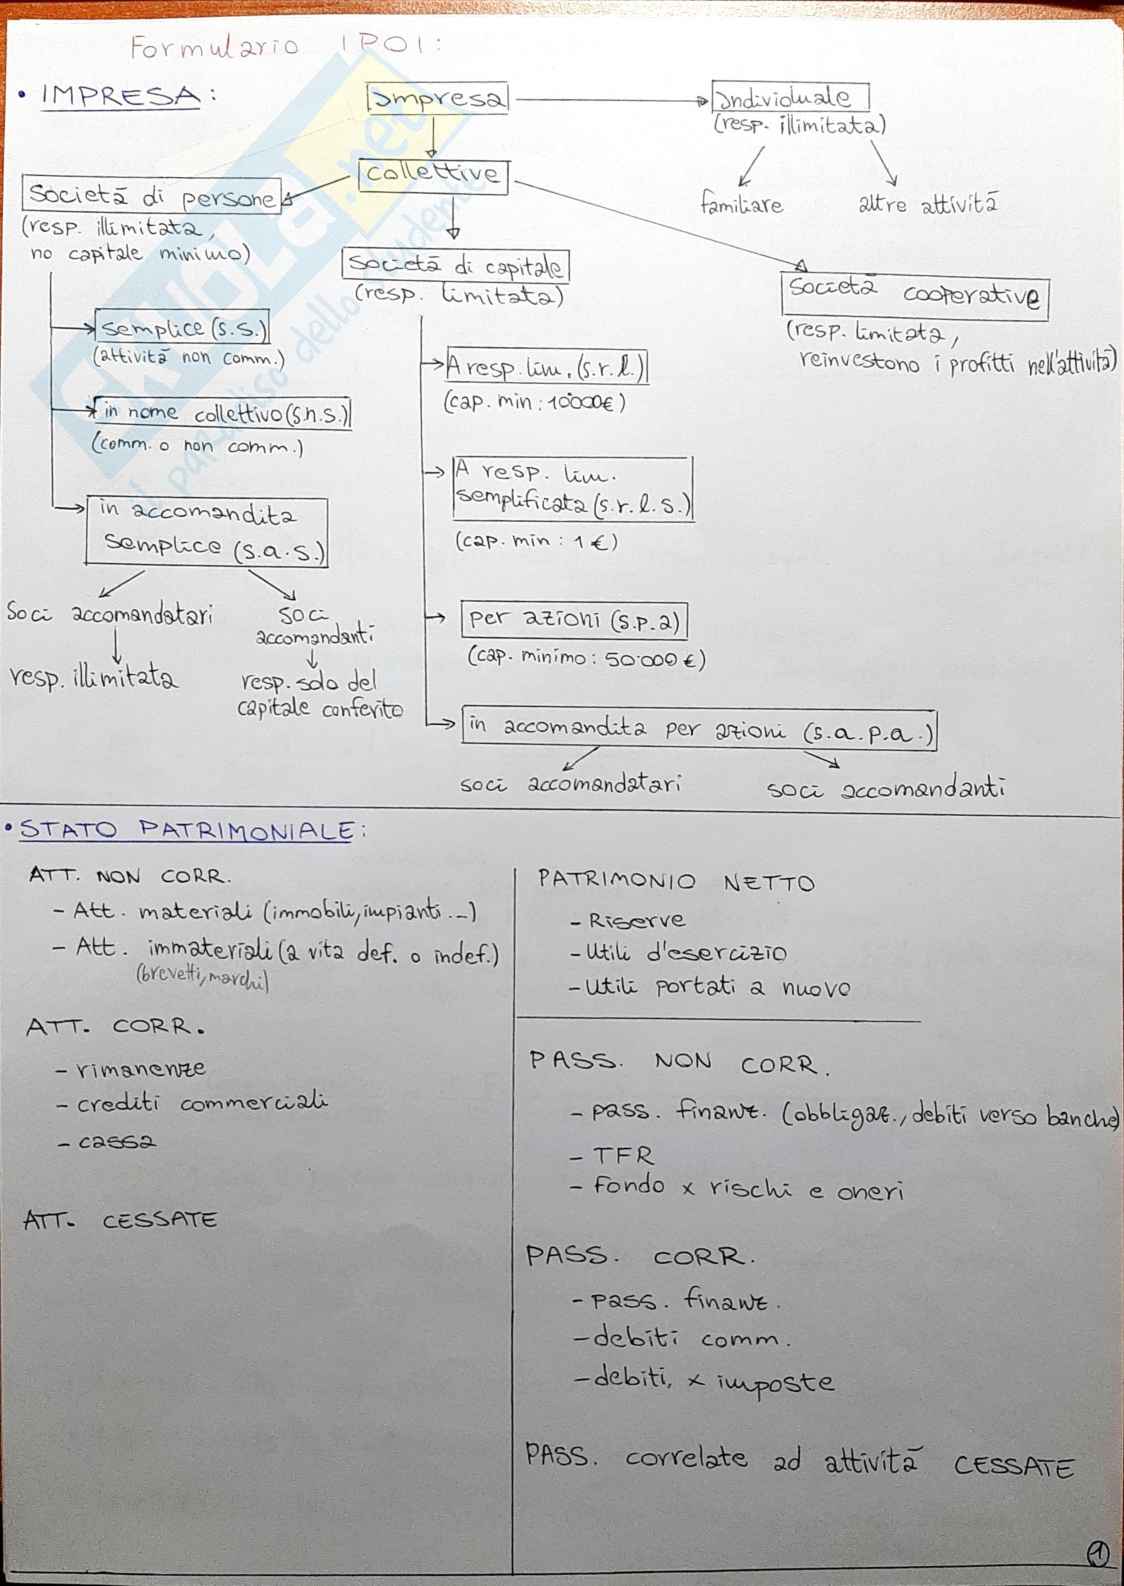 Formulario IPOI:
• IMPRESA:
Impresa
Individuale
(resp. illimitata)
familiare
altre attività
collettive
Società di persone
(resp. illimitata,
no capitale minimo)
semplice (s.s.)
(attività non comm.)
in nome collettivo (s.n.s.)
(comm. o non comm.)
in accomandita
semplice (s.a.s.)
Soci accomandatari
resp. illimitata
soci
accomandanti
resp. solo del
capitale conferito
Società di capitale
(resp. limitata)
A resp. lim. (s.r.l.)
(cap. min: 10'000€)
A resp. lim.
semplificata (s.r.l.s.)
(cap. min: 1€)
per azioni (s.p.a)
(cap. minimo: 50'000€)
in accomandita per azioni (s.a.p.a.)
soci accomandatari
soci accomandanti
Società cooperative
(resp. limitata,
reinvestono i profitti nell'attività)
SKUOLA.net
il paradiso dello studente
• STATO PATRIMONIALE:
ATT. NON CORR.
- Att. materiali (immobili, impianti...)
- Att. immateriali (a vita def. o indef.)
(brevetti, marchi)
ATT. CORR.
- rimanenze
- crediti commerciali
- cassa
ATT. CESSATE
PATRIMONIO NETTO
- Riserve
- Utili d'esercizio
- Utili portati a nuovo
PASS. NON CORR.
- pass. finanz. (obbligaz., debiti verso banche)
- TFR
- Fondo x rischi e oneri
PASS. CORR.
- pass. finanz.
- debiti comm.
- debiti, x imposte
PASS. correlate ad attività CESSATE
1